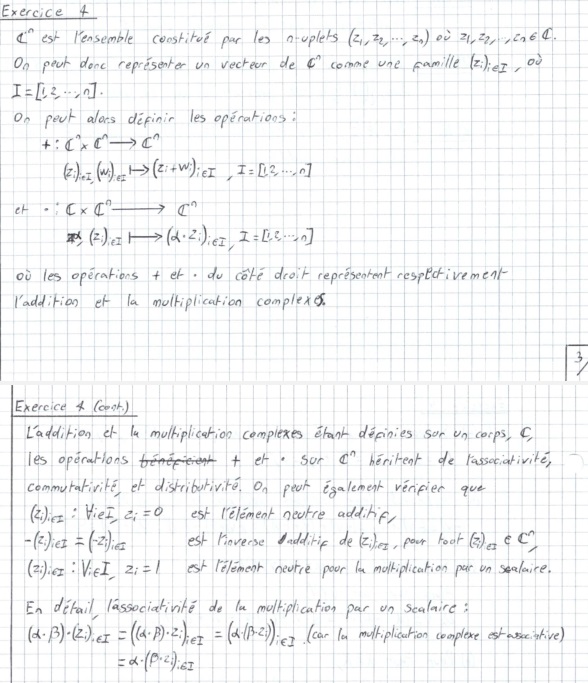 Exercice 4
ℂⁿ est l'ensemble constitué par les n-uplets (z₁, z₂, ..., zₙ) où z₁, z₂, ..., zₙ ∈ ℂ.
On peut donc représenter un vecteur de ℂⁿ comme une famille (zᵢ)ᵢ∈I, où
I = [1, 2, ..., n].
On peut alors définir les opérations :
+ : ℂⁿ × ℂⁿ ⟶ ℂⁿ
(zᵢ)ᵢ∈I, (wᵢ)ᵢ∈I ⟼ (zᵢ + wᵢ)ᵢ∈I, I = [1, 2, ..., n]
et · : ℂ × ℂⁿ ⟶ ℂⁿ
α, (zᵢ)ᵢ∈I ⟼ (α · zᵢ)ᵢ∈I, I = [1, 2, ..., n]
où les opérations + et · du côté droit représentent respectivement
l'addition et la multiplication complexes.
3/
Exercice 4 (cont.)
L'addition et la multiplication complexes étant définies sur un corps, ℂ,
les opérations bénéficient + et · sur ℂⁿ héritent de l'associativité,
commutativité, et distributivité. On peut également vérifier que
(zᵢ)ᵢ∈I : ∀i∈I, zᵢ = 0 est l'élément neutre additif,
-(zᵢ)ᵢ∈I = (-zᵢ)ᵢ∈I est l'inverse additif de (zᵢ)ᵢ∈I, pour tout (zᵢ)ᵢ∈I ∈ ℂⁿ,
(zᵢ)ᵢ∈I : ∀i∈I, zᵢ = 1 est l'élément neutre pour la multiplication par un scalaire.
En détail, l'associativité de la multiplication par un scalaire :
(α · β) · (zᵢ)ᵢ∈I = ((α · β) · zᵢ)ᵢ∈I = (α · (β · zᵢ))ᵢ∈I (car la multiplication complexe est associative)
= α · (β · zᵢ)ᵢ∈I